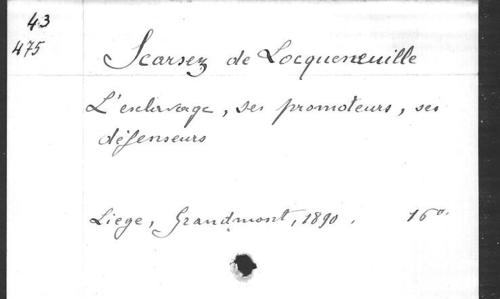 43
475
Scarsez de Locqueneuille
L'esclavage, ses promoteurs, ses
défenseurs
Liege, Grandmont, 1890. 16°.